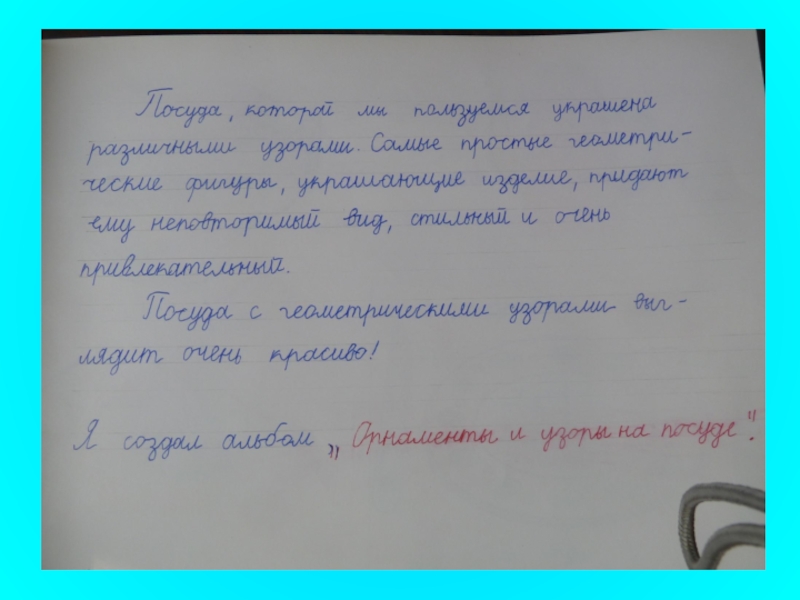 Посуда, которой мы пользуемся украшена
различными узорами. Самые простые геометри-
ческие фигуры, украшающие изделие, придают
ему неповторимый вид, стильный и очень
привлекательный.
Посуда с геометрическими узорами выг-
лядит очень красиво!
Я создал альбом „Орнаменты и узоры на посуде".